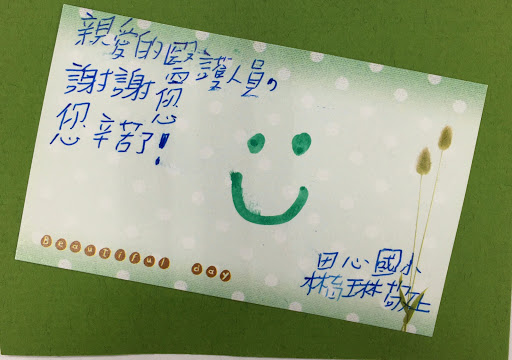 親愛的醫護人員，
謝謝您
您辛苦了!
Beautiful day
田心國小
林琳敬上